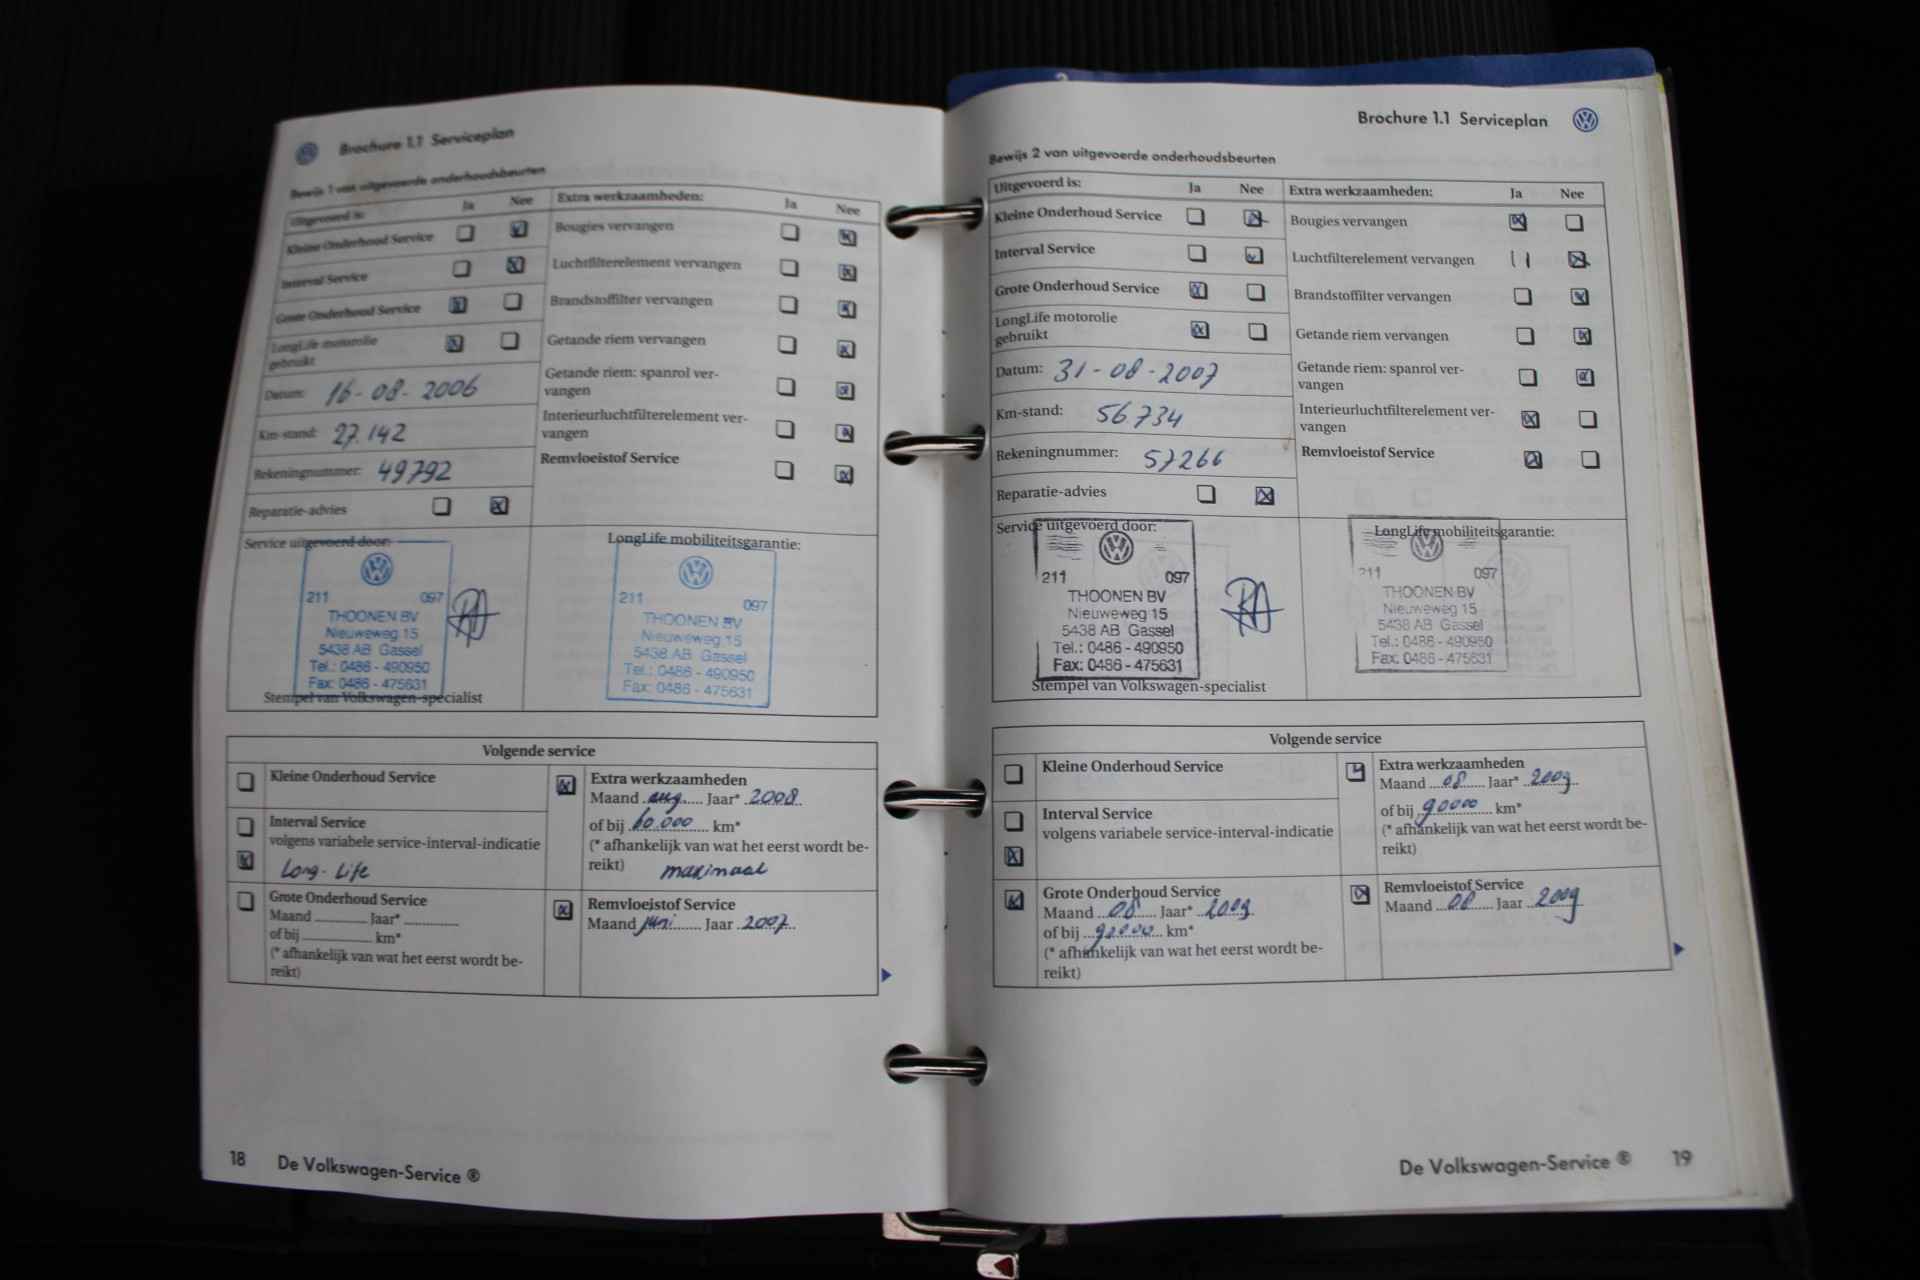 Brochure 1.1 Serviceplan
Bewijs 1 van uitgevoerde onderhoudsbeurten
Uitgevoerd is: Ja Nee
Kleine Onderhoud Service
Interval Service
Grote Onderhoud Service
LongLife motorolie
gebruikt
Datum: 16-08-2006
Km-stand: 27.142
Rekeningnummer: 49792
Reparatie-advies
Extra werkzaamheden: Ja Nee
Bougies vervangen
Luchtfilterelement vervangen
Brandstoffilter vervangen
Getande riem vervangen
Getande riem: spanrol ver-
vangen
Interieurluchtfilterelement ver-
vangen
Remvloeistof Service
Service uitgevoerd door:
211 097
THOONEN BV
Nieuweweg 15
5438 AB Gassel
Tel.: 0486 - 490950
Fax: 0486 - 475631
Stempel van Volkswagen-specialist
LongLife mobiliteitsgarantie:
211 097
THOONEN BV
Nieuweweg 15
5438 AB Gassel
Tel.: 0486 - 490950
Fax: 0486 - 475631
Volgende service
Kleine Onderhoud Service
Interval Service
volgens variabele service-interval-indicatie
Long-Life
Grote Onderhoud Service
Maand ............ Jaar* ............
of bij ............ km*
(* afhankelijk van wat het eerst wordt be-
reikt)
Extra werkzaamheden
Maand aug Jaar* 2008
of bij 60.000 km*
(* afhankelijk van wat het eerst wordt be-
reikt) maximaal
Remvloeistof Service
Maand juni Jaar 2007
18 De Volkswagen-Service ®
Brochure 1.1 Serviceplan
Bewijs 2 van uitgevoerde onderhoudsbeurten
Uitgevoerd is: Ja Nee
Kleine Onderhoud Service
Interval Service
Grote Onderhoud Service
LongLife motorolie
gebruikt
Datum: 31-08-2007
Km-stand: 56.734
Rekeningnummer: 57266
Reparatie-advies
Extra werkzaamheden: Ja Nee
Bougies vervangen
Luchtfilterelement vervangen
Brandstoffilter vervangen
Getande riem vervangen
Getande riem: spanrol ver-
vangen
Interieurluchtfilterelement ver-
vangen
Remvloeistof Service
Service uitgevoerd door:
211 097
THOONEN BV
Nieuweweg 15
5438 AB Gassel
Tel.: 0486 - 490950
Fax: 0486 - 475631
Stempel van Volkswagen-specialist
LongLife mobiliteitsgarantie:
211 097
THOONEN BV
Nieuweweg 15
5438 AB Gassel
Tel.: 0486 - 490950
Fax: 0486 - 475631
Volgende service
Kleine Onderhoud Service
Interval Service
volgens variabele service-interval-indicatie
Grote Onderhoud Service
Maand 08 Jaar* 2009
of bij 90000 km*
(* afhankelijk van wat het eerst wordt be-
reikt)
Extra werkzaamheden
Maand 08 Jaar* 2009
of bij 90000 km*
(* afhankelijk van wat het eerst wordt be-
reikt)
Remvloeistof Service
Maand 08 Jaar 2009
De Volkswagen-Service ® 19